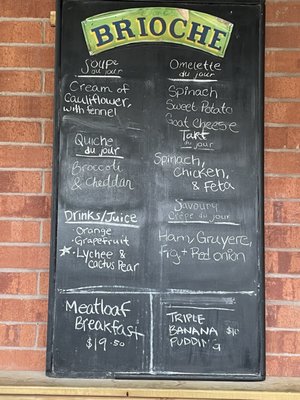 BRIOCHE
Soupe
du jour
Cream of
Cauliflower,
with fennel
Quiche
du jour
Broccoti
& Cheddar
Drinks/Juice
Orange
Grapefruit
Lychee &
cactus Pear
Meatloaf
Breakfast
$19.50
Omelette
du jour
Spinach
Sweet Potato
Goat Cheese
Tart
du jour
Spinach,
Chicken,
& Feta
Savoury
Crêpe du jour
Ham, Gruyere,
Fig + Red onion
TRIPLE
BANANA
PUDDING